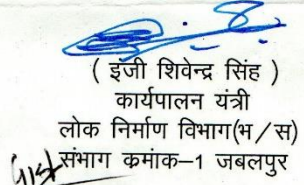 ( इंजी शिवेन्द्र सिंह )
कार्यपालन यंत्री
लोक निर्माण विभाग(भ/स)
संभाग कमांक–1 जबलपुर